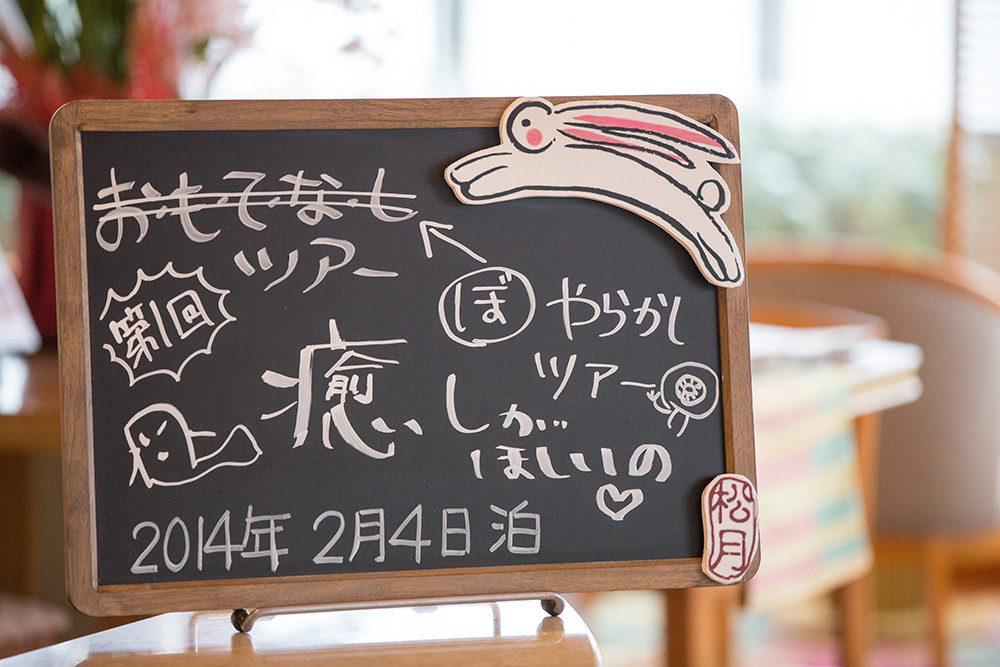 お・も・て・な・し
ツアー
第1回
ぼ やらかし
ツアー
癒しが
ほしいの
2014年 2月4日 泊
松月